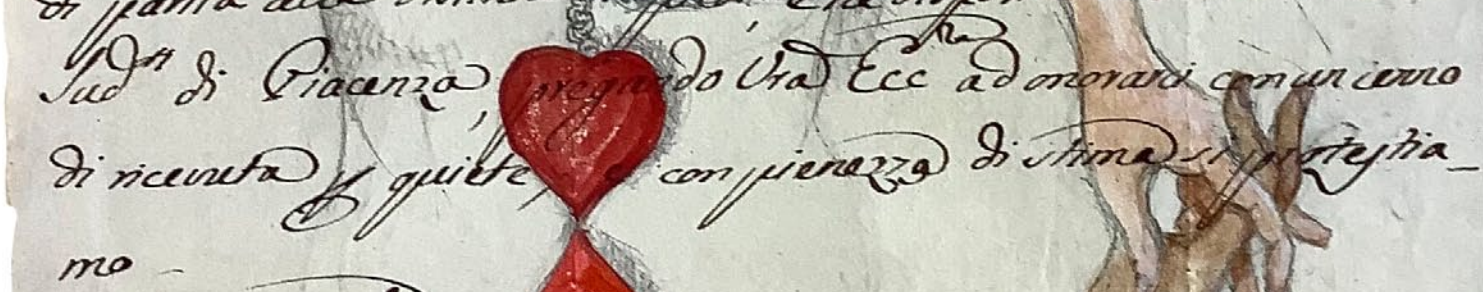 di
Sud.ti di Piacenza, pregando Vra Ecc.za ad onorarci con un cenno
di ricevuta p quiete, e con pienezza di stima si protestia_
mo